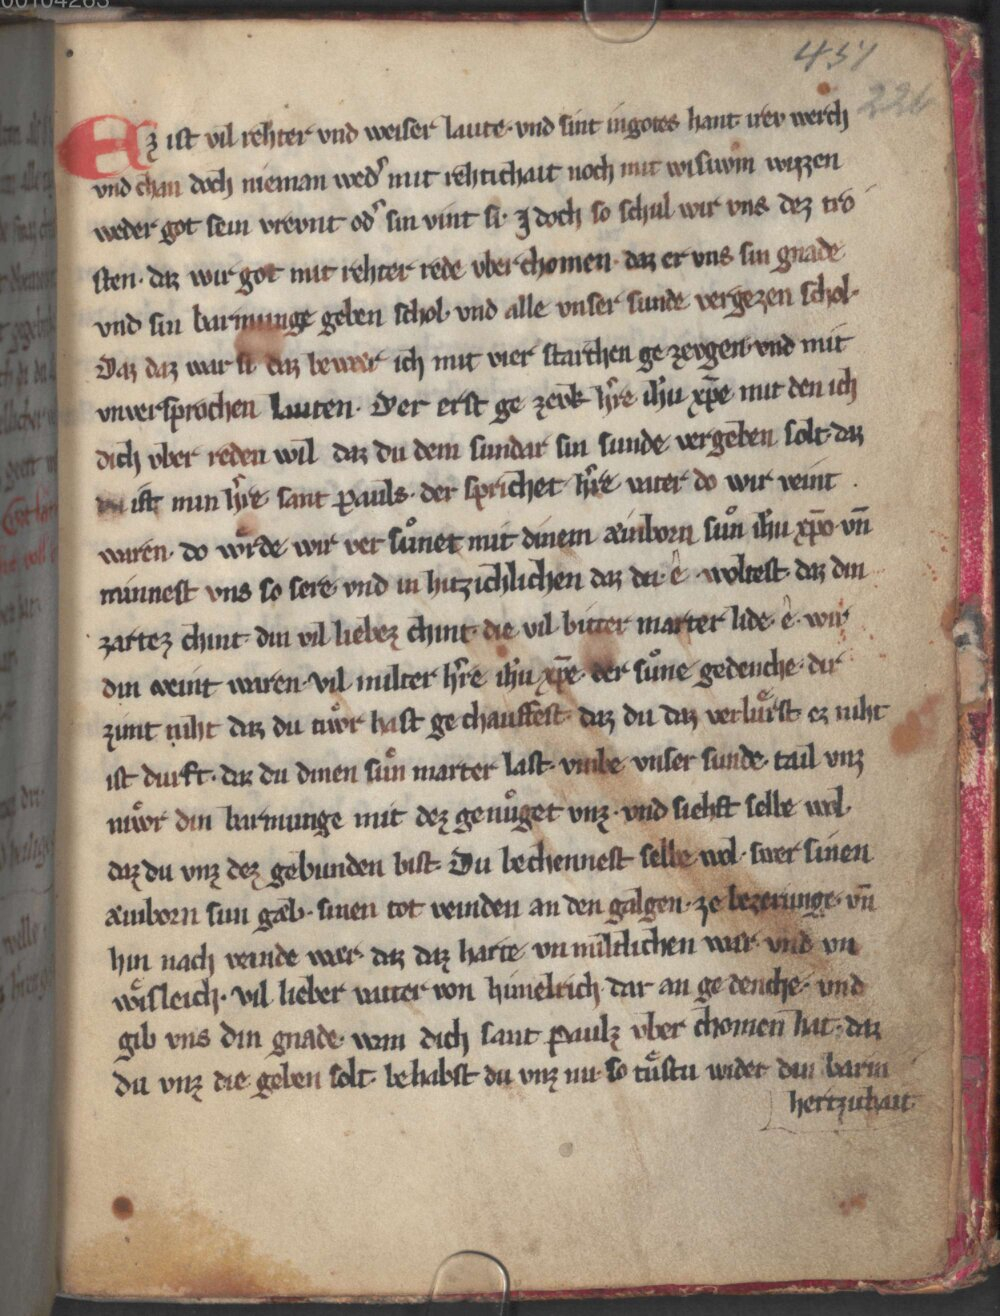 457
226
Ez ist vil rehter vnd weiser laute· vnd sint ingotes hant irev werch
vnd chan doch nieman wedˀ mit rehtichait noch mit wisuom wizzen
weder got sein vrevnt odˀ sin vint si· J doch so schul wir vns dez tro
sten· daz wir got mit rehter rede vber chomen· daz er vns sin gnade
vnd sin barmunge geben schol· vnd alle vnser sunde vergezen schol·
Daz daz war si daz bewær ich mit vier starchen ge zevgen· vnd mit
vnversprochen læuten· Der erst ge zevk hˀre ih̄u xp̄e mit den ich
dich vber reden wil daz du dem sundar sin sunde vergeben solt· daz
ist min hˀre sant pauls· der sprichet· hˀre vater do wir veint
waren· do wͦrde wir ver sͦunet mit dinem æinborn sͦun ih̄u xp̄o· vn̄
minnest vns so sere· vnd in hitzichlichen daz du· ê· woltest· daz din
zartez chint· din vil liebez chint· die vil bitter marter lide· ê· wir
din veint waren· vil milter hˀre ih̄u xp̄e· der sͦune gedenche· dir
zimt niht daz du tiwͦr hast ge chauffest· daz du daz verlͤurst· ez niht
ist durft· daz du dinen sͦun marter last· vmbe vnser sunde· tail vnz
niwͦr din barmunge mit dez genͦuget vnz· vnd siehst selbe wol·
daz du vnz dez gebunden bist· Du bechennest selbe wol· swer sinen
æinborn sun gab· sinen tot veinden an den galgen· ze bezerunge· vn̄
hin nach veinde wer· daz daz harte vn miltlichen wær· vnd vn
wͤisleich· vil lieber vatter von himelrich· dar an ge denche· vnd
gib vns din gnade· wan dich sant Paulz vber chomen hat· daz
du vnz die geben solt· behabst du vnz nu· so tͤustu wider din barm
hertzichait